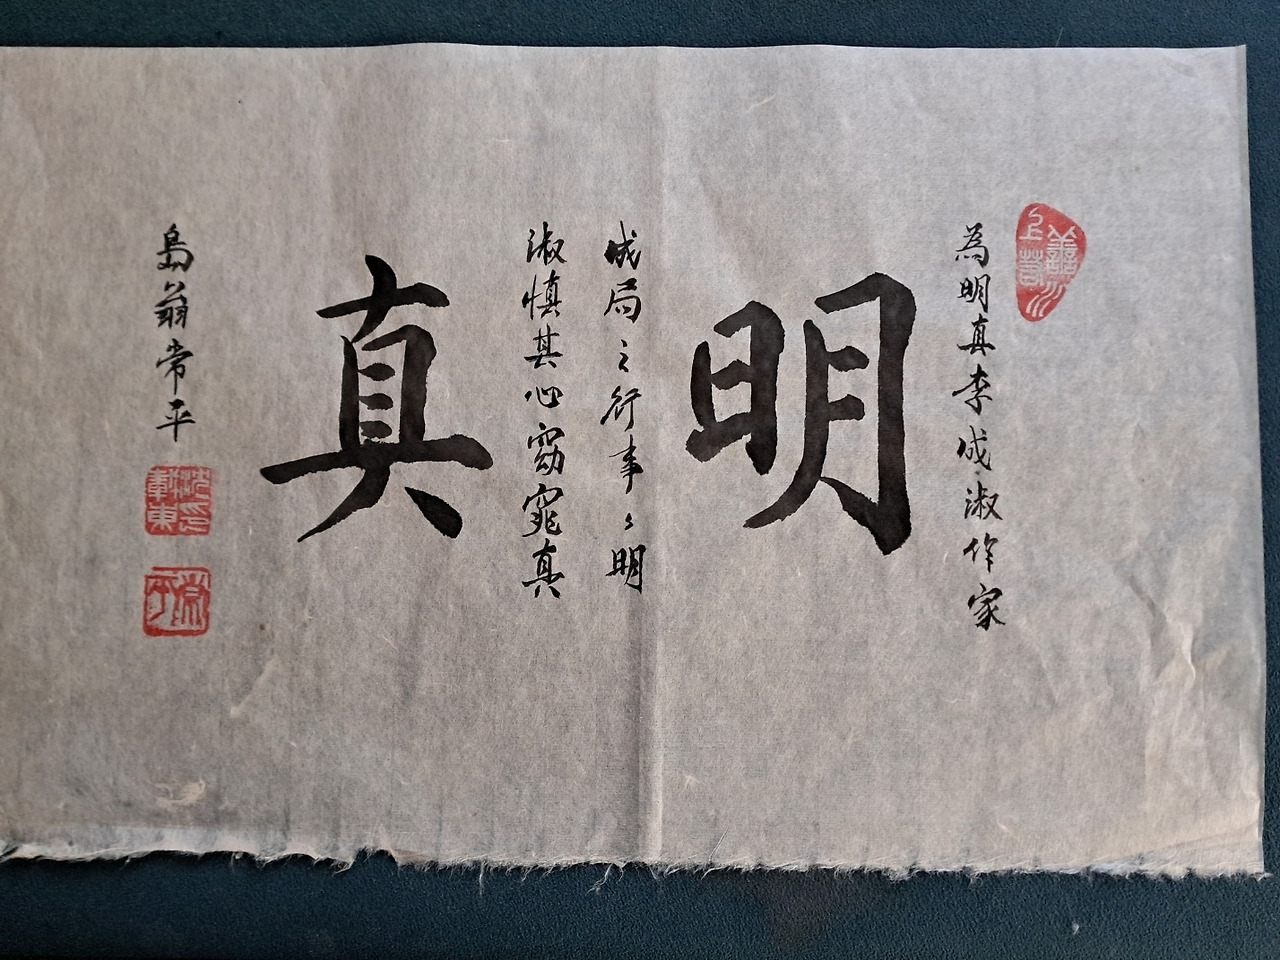 為明真李成淑作家
明
成局之行事〻明
淑慎其心窈窕真
真
島翁常平